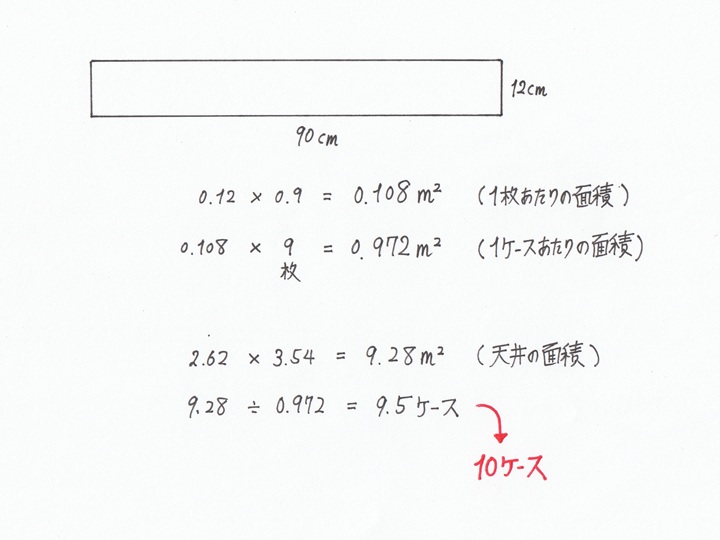 12cm
90cm
0.12 × 0.9 = 0.108 m² (1枚あたりの面積)
0.108 × 9 = 0.972 m² (1ケースあたりの面積)
枚
2.62 × 3.54 = 9.28 m² (天井の面積)
9.28 ÷ 0.972 = 9.5ケース
10ケース